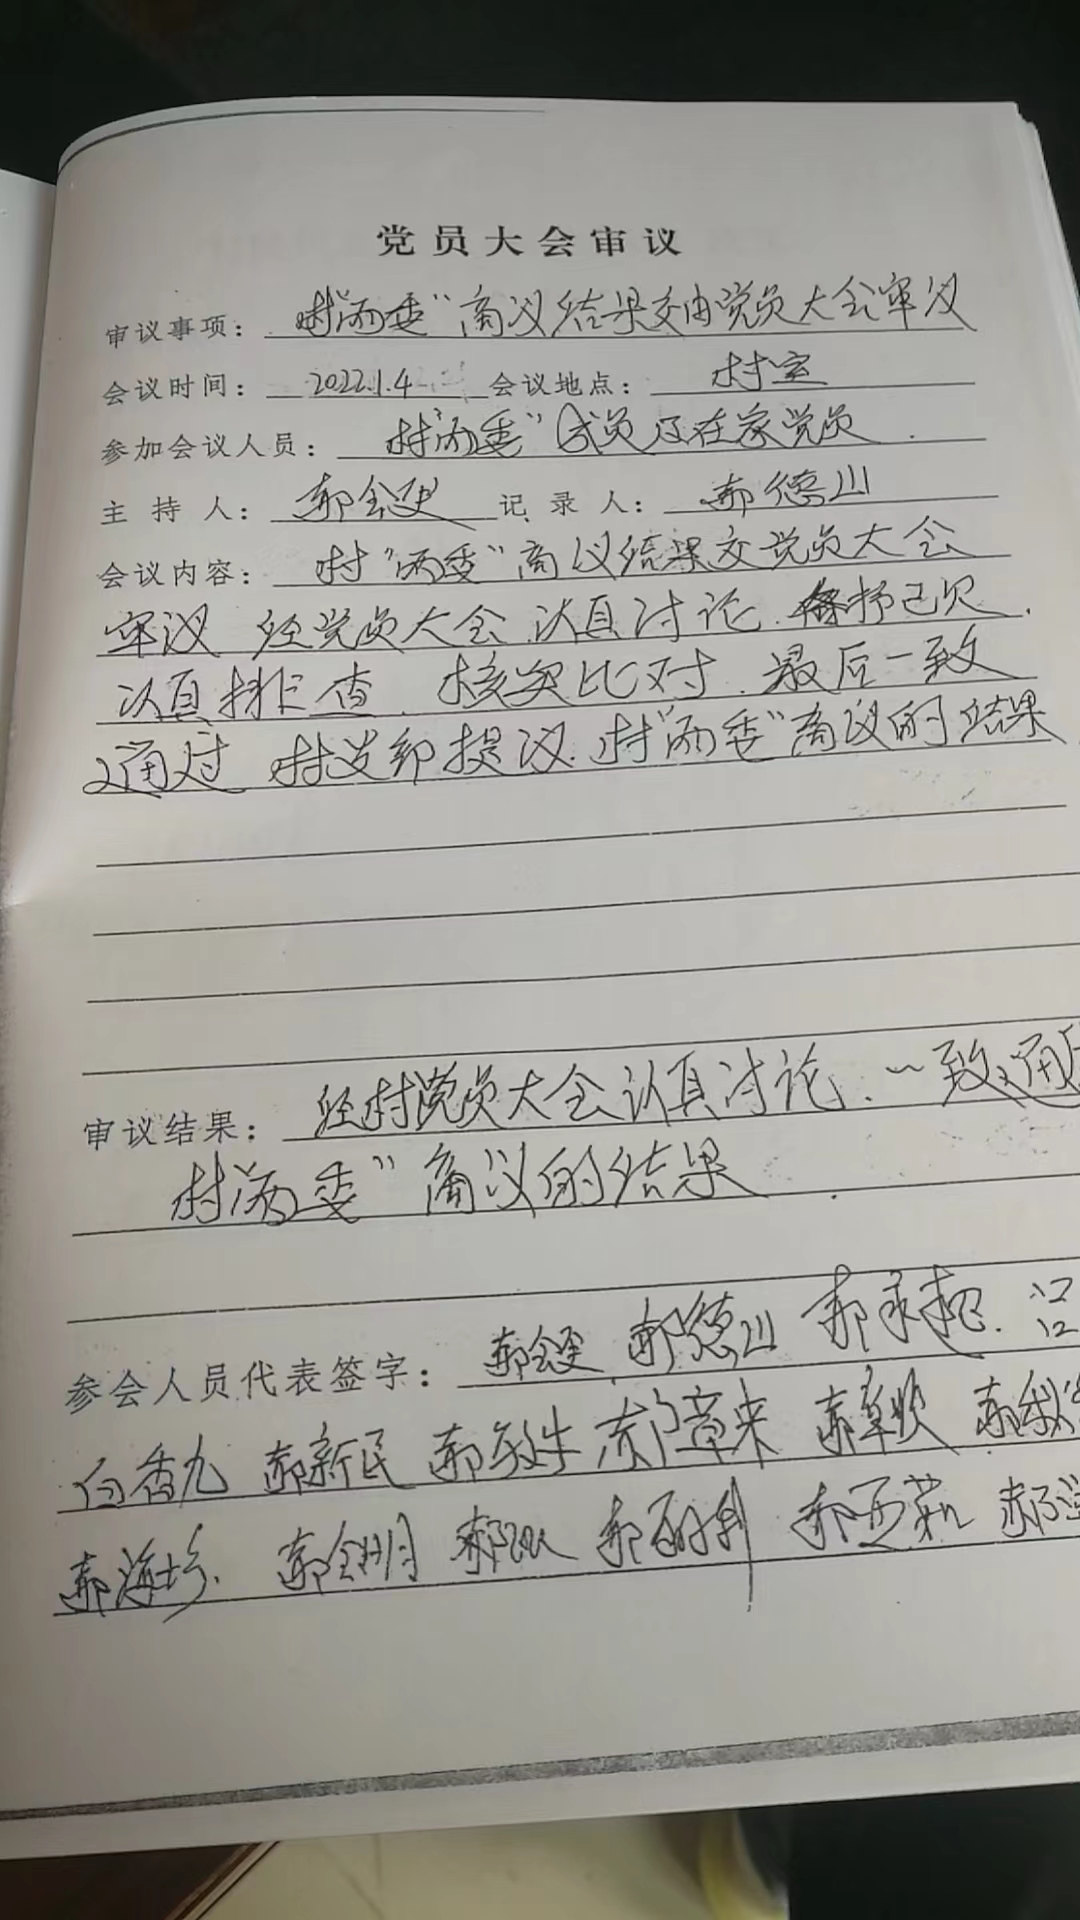 党员大会审议
审议事项： 村“两委”商议结果交由党员大会审议
会议时间： 2022.1.4 会议地点： 村室
参加会议人员： 村“两委”成员及在家党员
主持人： 郝会更 记录人： 郝德山
会议内容： 村“两委”商议结果交党员大会
审议 经党员大会认真讨论
认真排查、核实比对、最后一致
通过 村支部提议、村“两委”商议的结果
审议结果： 经村党员大会认真讨论、一致通
村“两委”商议的结果
参会人员代表签字： 郝会更 郝德山 郝永超
白香九 郝新民 郝章来
郝海珍 郝金明